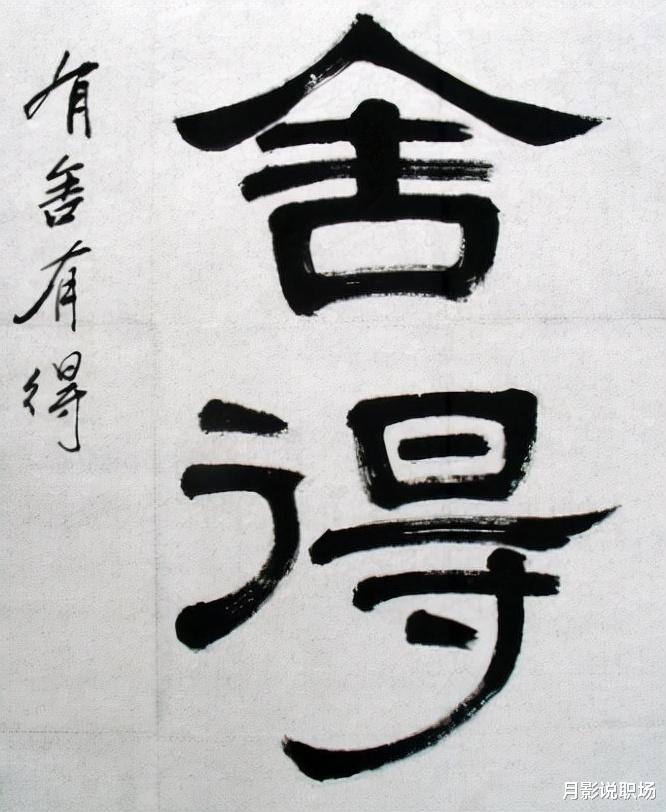 舍得
有舍有得
月影说职场